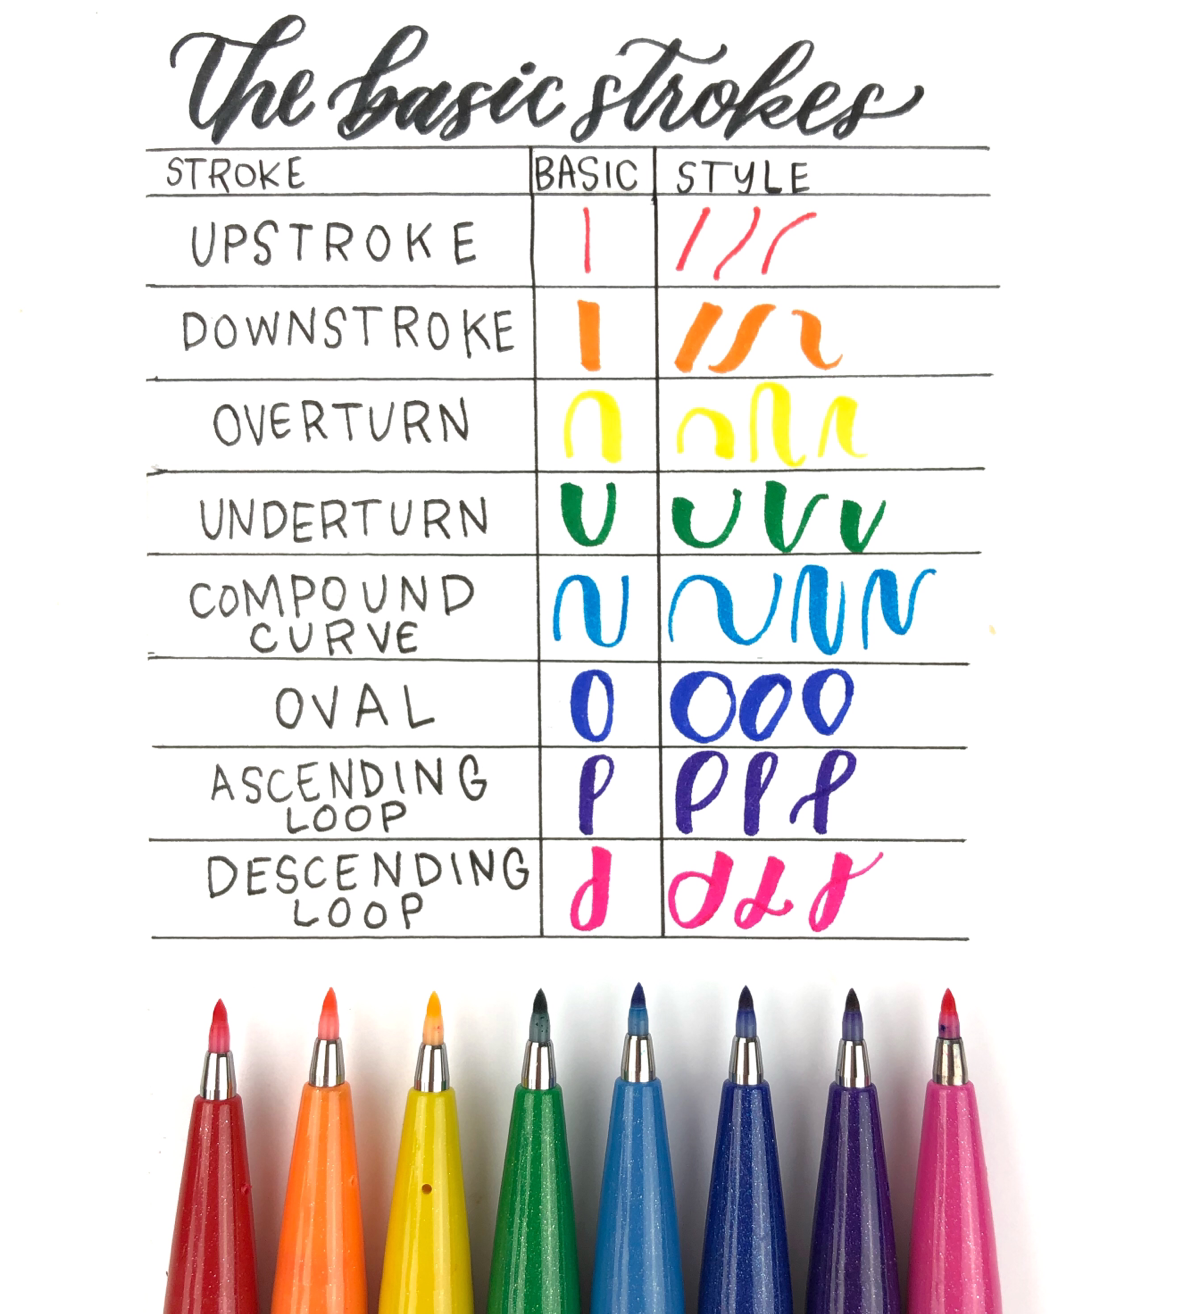 The basic strokes
STROKE BASIC STYLE
UPSTROKE
DOWNSTROKE
OVERTURN
UNDERTURN
COMPOUND
CURVE
OVAL
ASCENDING
LOOP
DESCENDING
LOOP